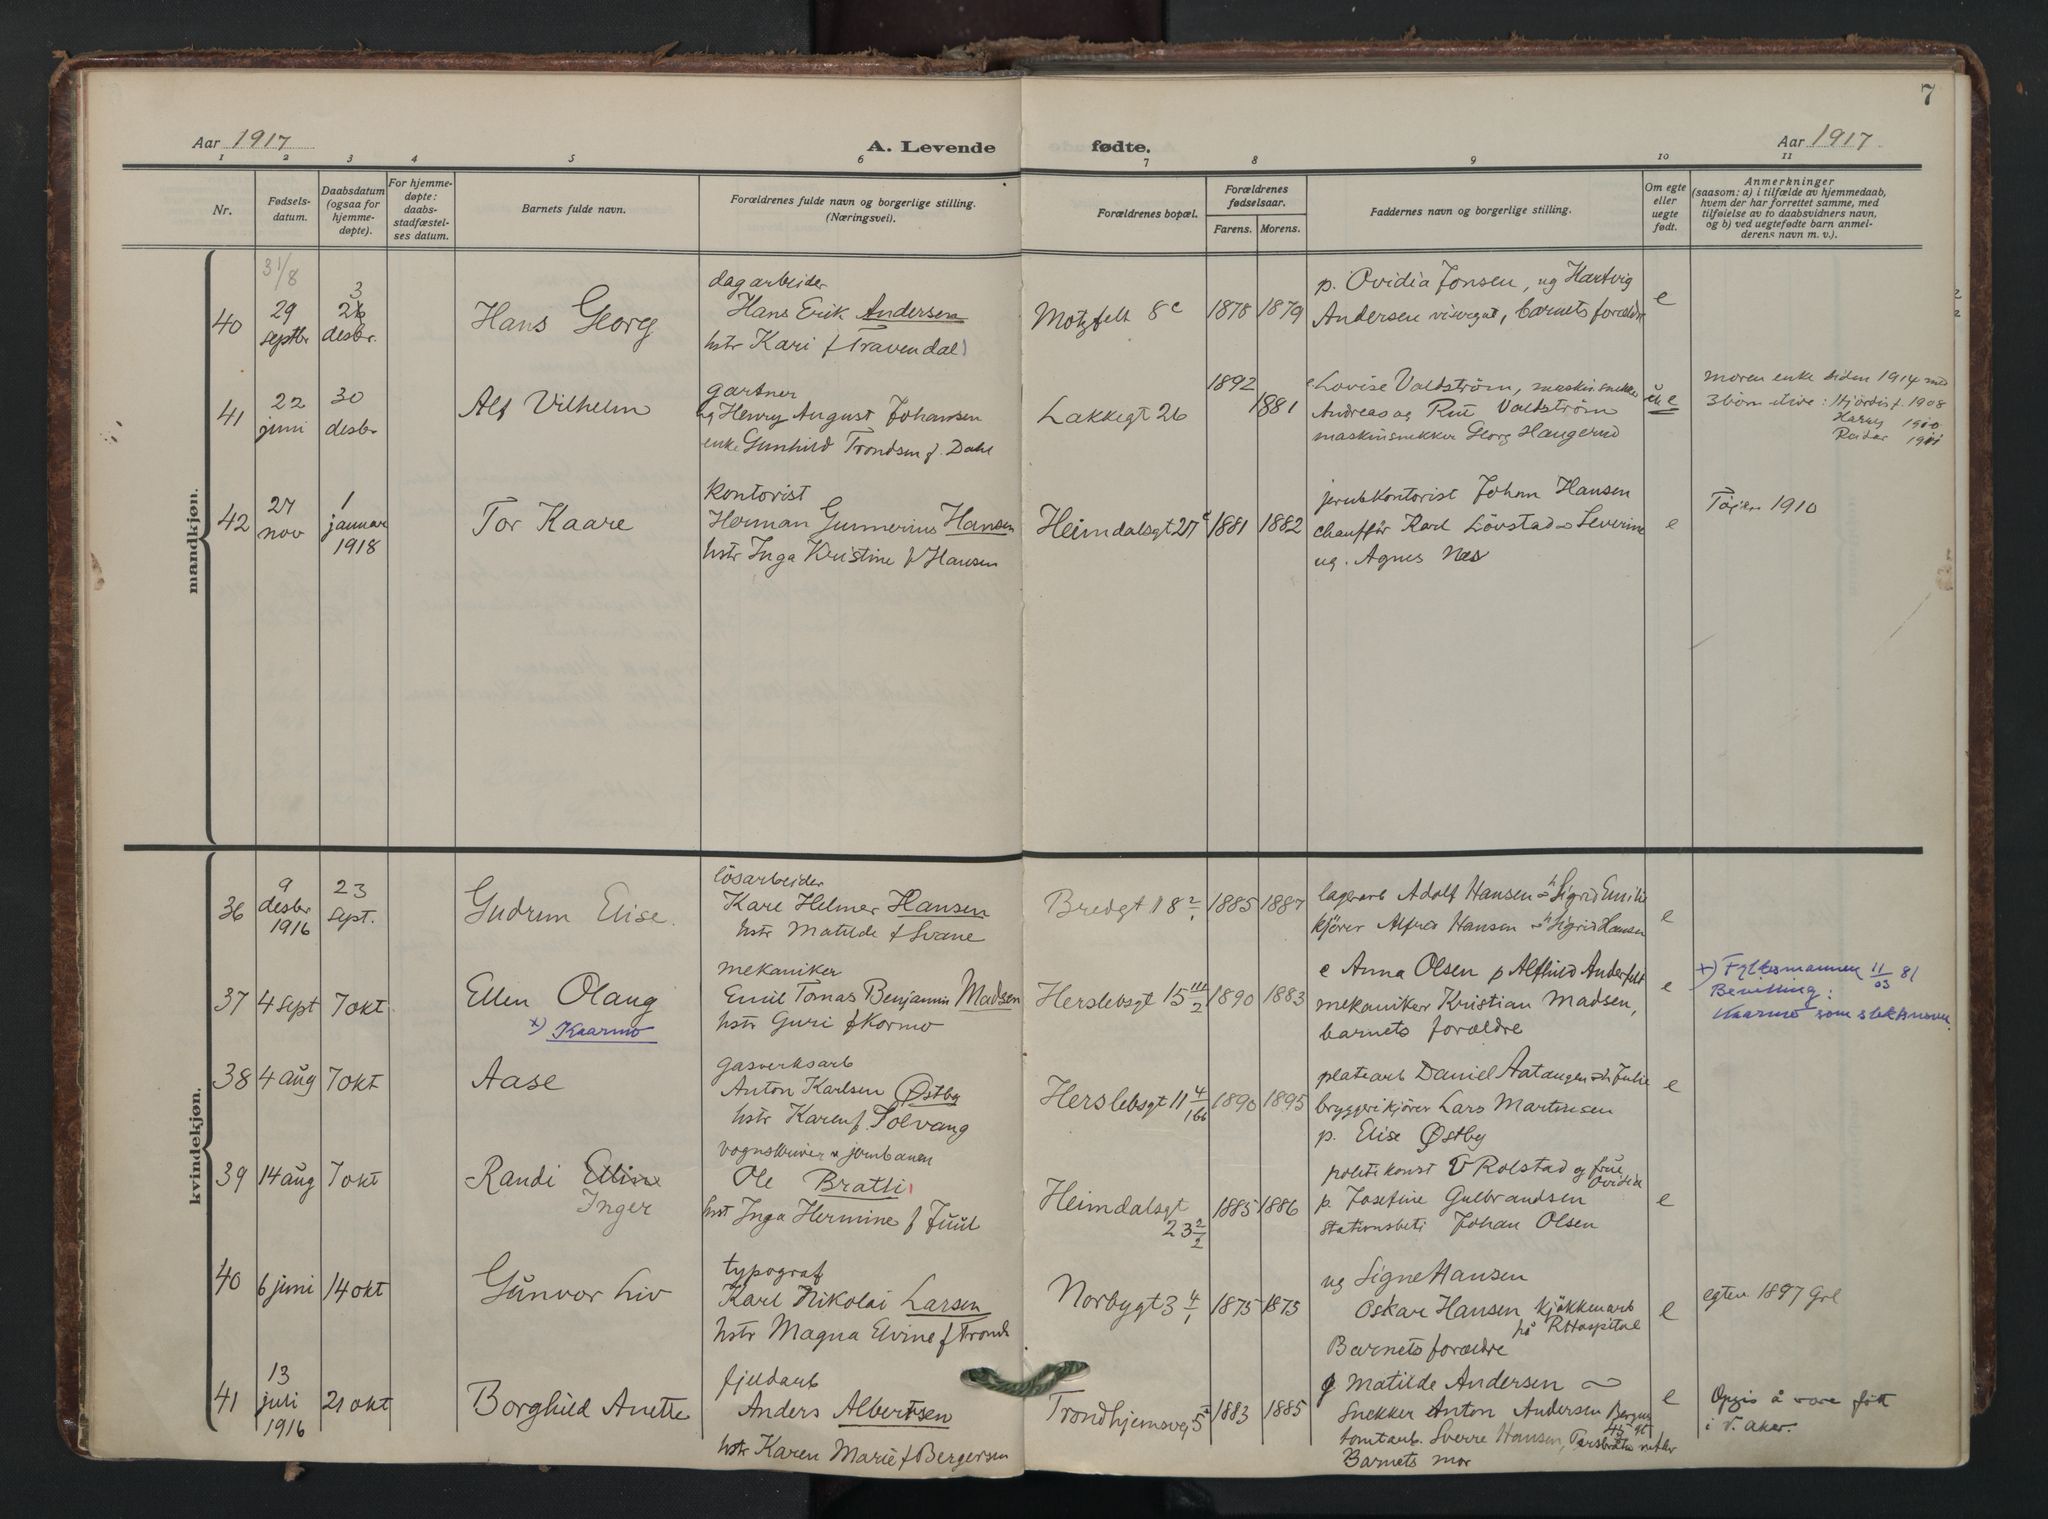 7
Aar 1917
A. Levende fødte.
Aar 1917.
1 2 3 4 5 6 7 8 9 10 11
Nr.
Fødselsdatum.
Daabsdatum (ogsaa for hjemmedøpte).
For hjemmedøpte: daabsstadfæstelses datum.
Barnets fulde navn.
Forældrenes fulde navn og borgerlige stilling. (Næringsvei).
Forældrenes bopæl.
Forældrenes fødselsaar.
Farens. Morens.
Faddernes navn og borgerlige stilling.
Om egte eller uegte født.
Anmerkninger
(saasom: a) i tilfælde av hjemmedaab, hvem der har forrettet samme, med tilføielse av to daabsvidners navn, og b) ved uegtefødte barn anmelderens navn m. v.).
mandkjøn.
31/8
40 29 septbr 3 desbr. Hans Georg
dagarbeider
Hans Erik Andersen
hstr Kari f Travendal
Motzfelt 8c 1878 1879
p. Ovidia Jonsen, ug Hartvig
Andersen visergut, barnets forældre
e
41 22 juni 30 desbr Alf Vilhelm
gartner
ug Henry August Johansen
enke Gunhild Trondsen f. Dahl
Lakkegt 26 1892 1881
e. Lovise Valdstrøm, maskinsnekker
Andreas og Rut Valdstrøm
maskinsnekker Georg Haugerud
moren enke siden 1914 med
3 børn i live: Hjördis f. 1908
Harry 1910
Reidar 1911
42 27 nov 1 januar 1918 Tor Kaare
kontorist
Herman Gunnerius Hansen
hstr Inga Kristine f Hansen
Heimdalsgt 27c 1881 1882
jernbkontorist Johan Hansen
chauffør Karl Lövstad o Severine
ug. Agnes Næs
e
Tøien 1910
kvindekjøn.
36 9 desbr 1916 23 sept. Gudrun Elise.
lösarbeider
Karl Helmer Hansen
hstr Matilde f Svane
Bredgt 18 2/1 1885 1887
lagerarb Adolf Hansen o h Sigrid Emilie
kjører Alfred Hansen o h Sigrid Hansen
e
37 4 sept 7 okt Ellen Olaug
x) Kaarmo
mekaniker
Emil Tomas Benjamin Madsen
hstr Guri f Kormo
Herslebsgt 15 III/2 1890 1883
e Anna Olsen p Alfhild
mekaniker Kristian Madsen,
barnets forældre
e
x) Fylkesmannen 11/03 81
Bevilling:
Kaarmo som slektsnavn.
38 4 aug 7 okt Aase
gasverksarb
Anton Karlsen Østby
hstr Karen f. Solvang
Herslebsgt 11 4/166 1890 1895
platearb Daniel Aatangen o h Julie
bryggerikjører Lars Martinsen
p. Elise Østby
e
39 14 aug 7 okt Randi Elline
Inger
vognskriver v jernbanen
Ole Bratli
hstr Inga Hermine f Juul
Heimdalsgt 23 2/2 1885 1886
politikonst V Rolstad og frue Ovidia
p. Josefine Gulbrandsen
stationsbetj Johan Olsen
e
40 6 juni 14 okt Gunvor Liv
typograf
Karl Nikolai Larsen
hstr Magna Elvine f
Norbygt 3 4/1 1875 1875
ug Signe Hansen
Oskar Hansen kjøkkenarb
på R Hospital
Barnets forældre
e
egten 1897 Grl
41 13 juli 1916 21 okt Borghild Anette
fjeldarb
Anders Albertsen
hstr Karen Marie f Bergersen
Trondhjemsvg 5 1883 1885
g Matilde Andersen
Snekker Anton Andersen
tomtarb. Sverre Hansen,
Barnets mor
e
Opgis å være født
i V. Aker.